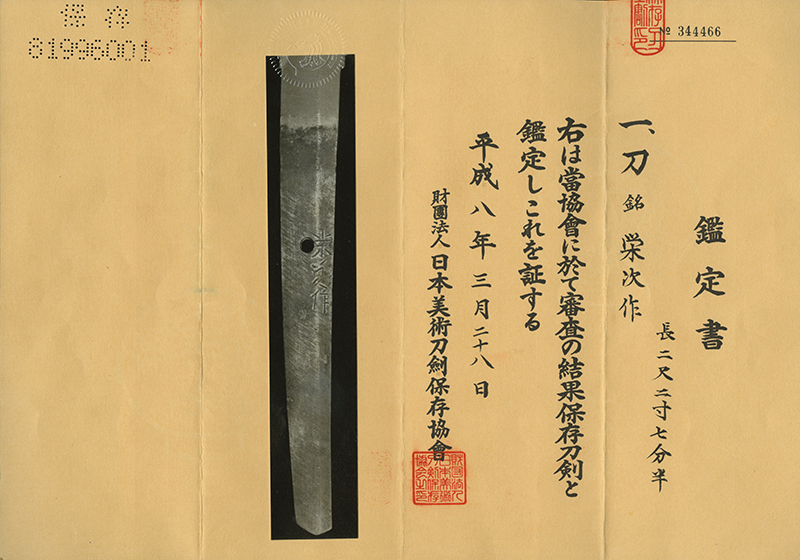 保存
81996001
№ 344466
鑑定書
一、刀 銘 栄次作
長二尺二寸七分半
右は當協會に於て審査の結果保存刀剣と
鑑定しこれを証する
平成八年三月二十八日
財團法人日本美術刀剣保存協會
栄次作